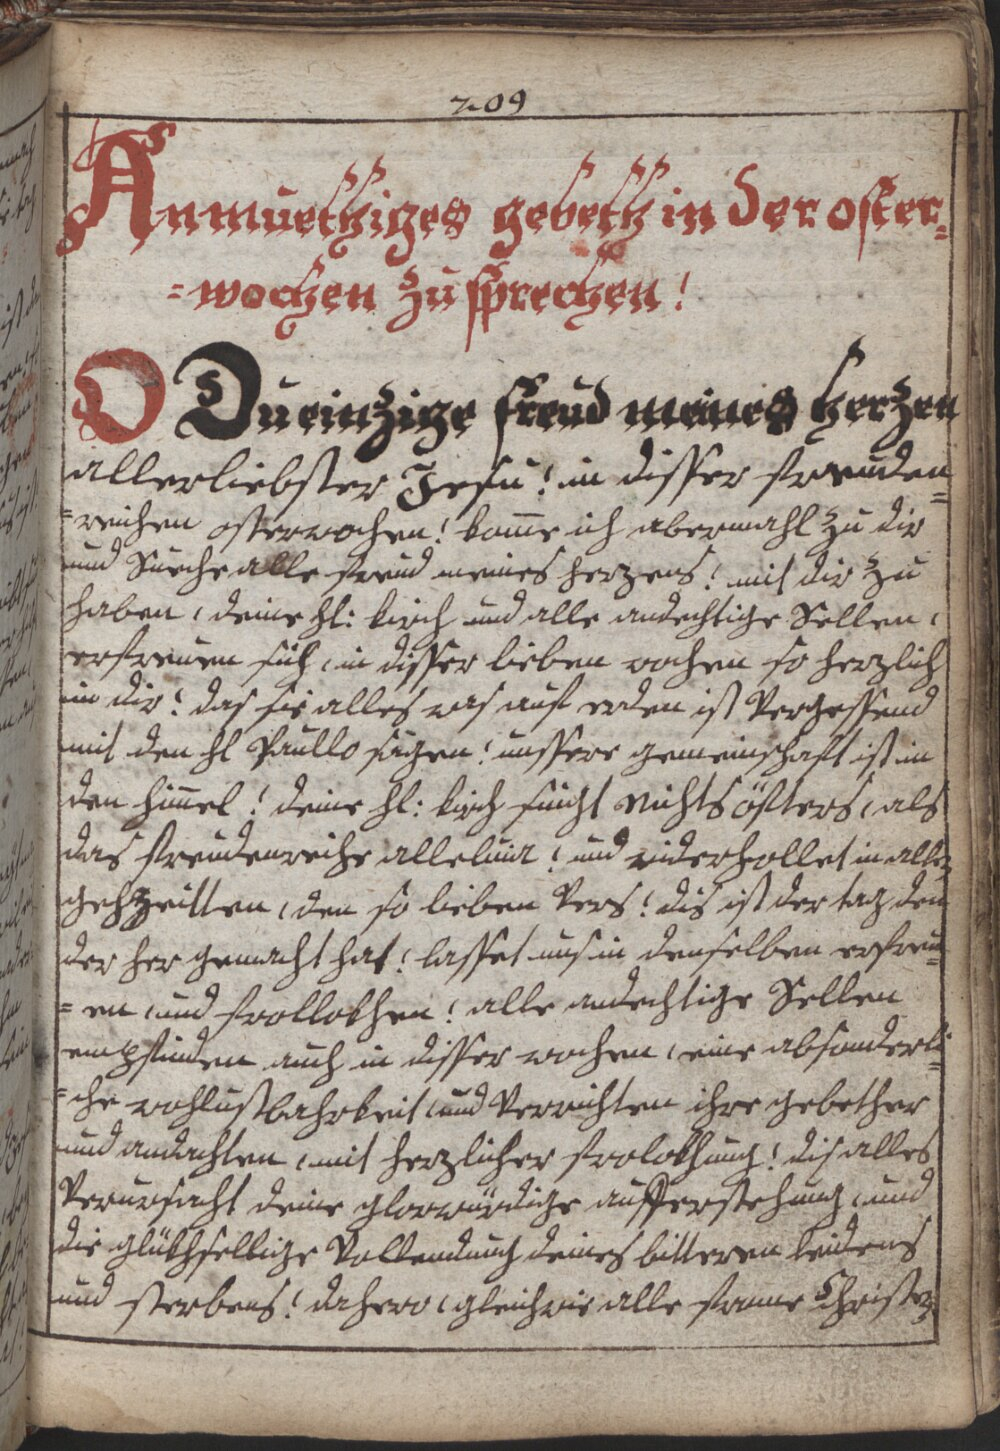 209
Anmuethiges gebeth in der oster=
=wochen zu sprechen!
O Du einzige freud meines herzen
allerliebster Jesu! in disser freuden=
=reichen osterwochen! komme ich abermahl zu dir
und Sueche alle freud meines herzens! mit dir zu
haben, deine hl: kirch und alle andechtige Sellen,
erfreuen sich, in disser lieben wochen so herzlich
in dir! das sie alles was auf erden ist Vergessend
mit den hl Paullo sagen! unssere gemeinschafft ist in
den himmel! deine hl: kirch singt Nichts öffters, als
das freudenreiche alleluia! und widerhollet in allen
gehzeitten, den so lieben Vers! dis ist der tag den
der her gemacht hat! lasset uns in denselben erfreu=
=en, und frollokhen! alle andechtige Sellen
empfinden auch in disser wochen, eine absonderli=
=che wohllustbahrkeit, und Verrichten ihre gebether
und andachten, mit herzlicher frolokhung! dis alles
Verursacht deine glorwürdige aufferstehung, und
die glükhsellige Vollendung deines bitteren leidens
und sterbens! dahero, gleichwie alle frome Christen